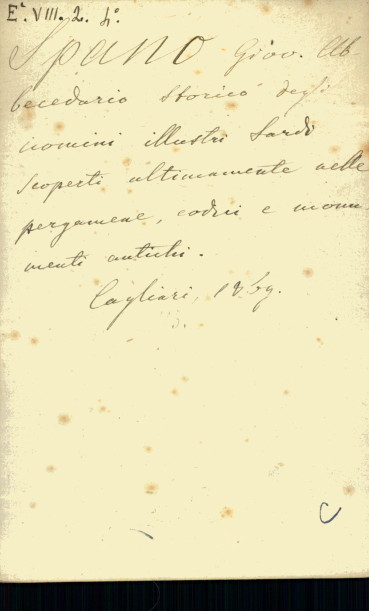 Eª. VIII. 2. 4º.
Spano Giov. Ab
becedario storico degli
uomini illustri Sardi
scoperti ultimamente nelle
pergamene, codici e monu
menti antichi.
Cagliari, 1869.